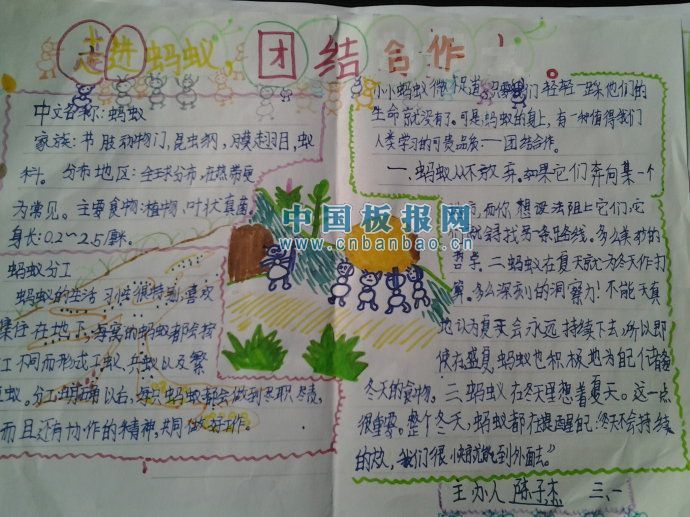 走进蚂蚁,团结合作!
中文名称:蚂蚁
家族:节肢动物门,昆虫纲,膜翅目,蚁
科。分布地区:全球分布,在热带更
为常见。主要食物:植物、叶状真菌
身长:0.2~2.5厘米。
蚂蚁分工
蚂蚁的生活习性很特别,喜欢
集住在地下,每窝的蚂蚁都会按
工不同而形成工蚁,兵蚁以及繁
蚁,分工以后,每只蚂蚁都会做到尽职尽责,
而且还有协作的精神,共同做好工作。
小小蚂蚁微们轻轻一踩他们的
生命就没有了。可是,蚂蚁的身上,有一种值得我们
人类学习的可贵品质:一团结合作。
一、蚂蚁从不放弃。如果它们奔向某一个
而你想设法阻止它们,它
就会寻找另一条路线。多么美妙的
哲学。二蚂蚁在夏天就为冬天作打
算。多么深刻的洞察力!不能天真
地认为夏天会永远持续下去,所以即
使在盛夏,蚂蚁也积极地为自己储备
冬天的食物。三、蚂蚁在冬天里想着夏天。这一点
很重要。整个冬天,蚂蚁都在提醒自己:冬天不会持续
的,我们很快就能到外面去。”
主办人 陈子杰 三、一
中国板报网
www.cnbanbao.cn